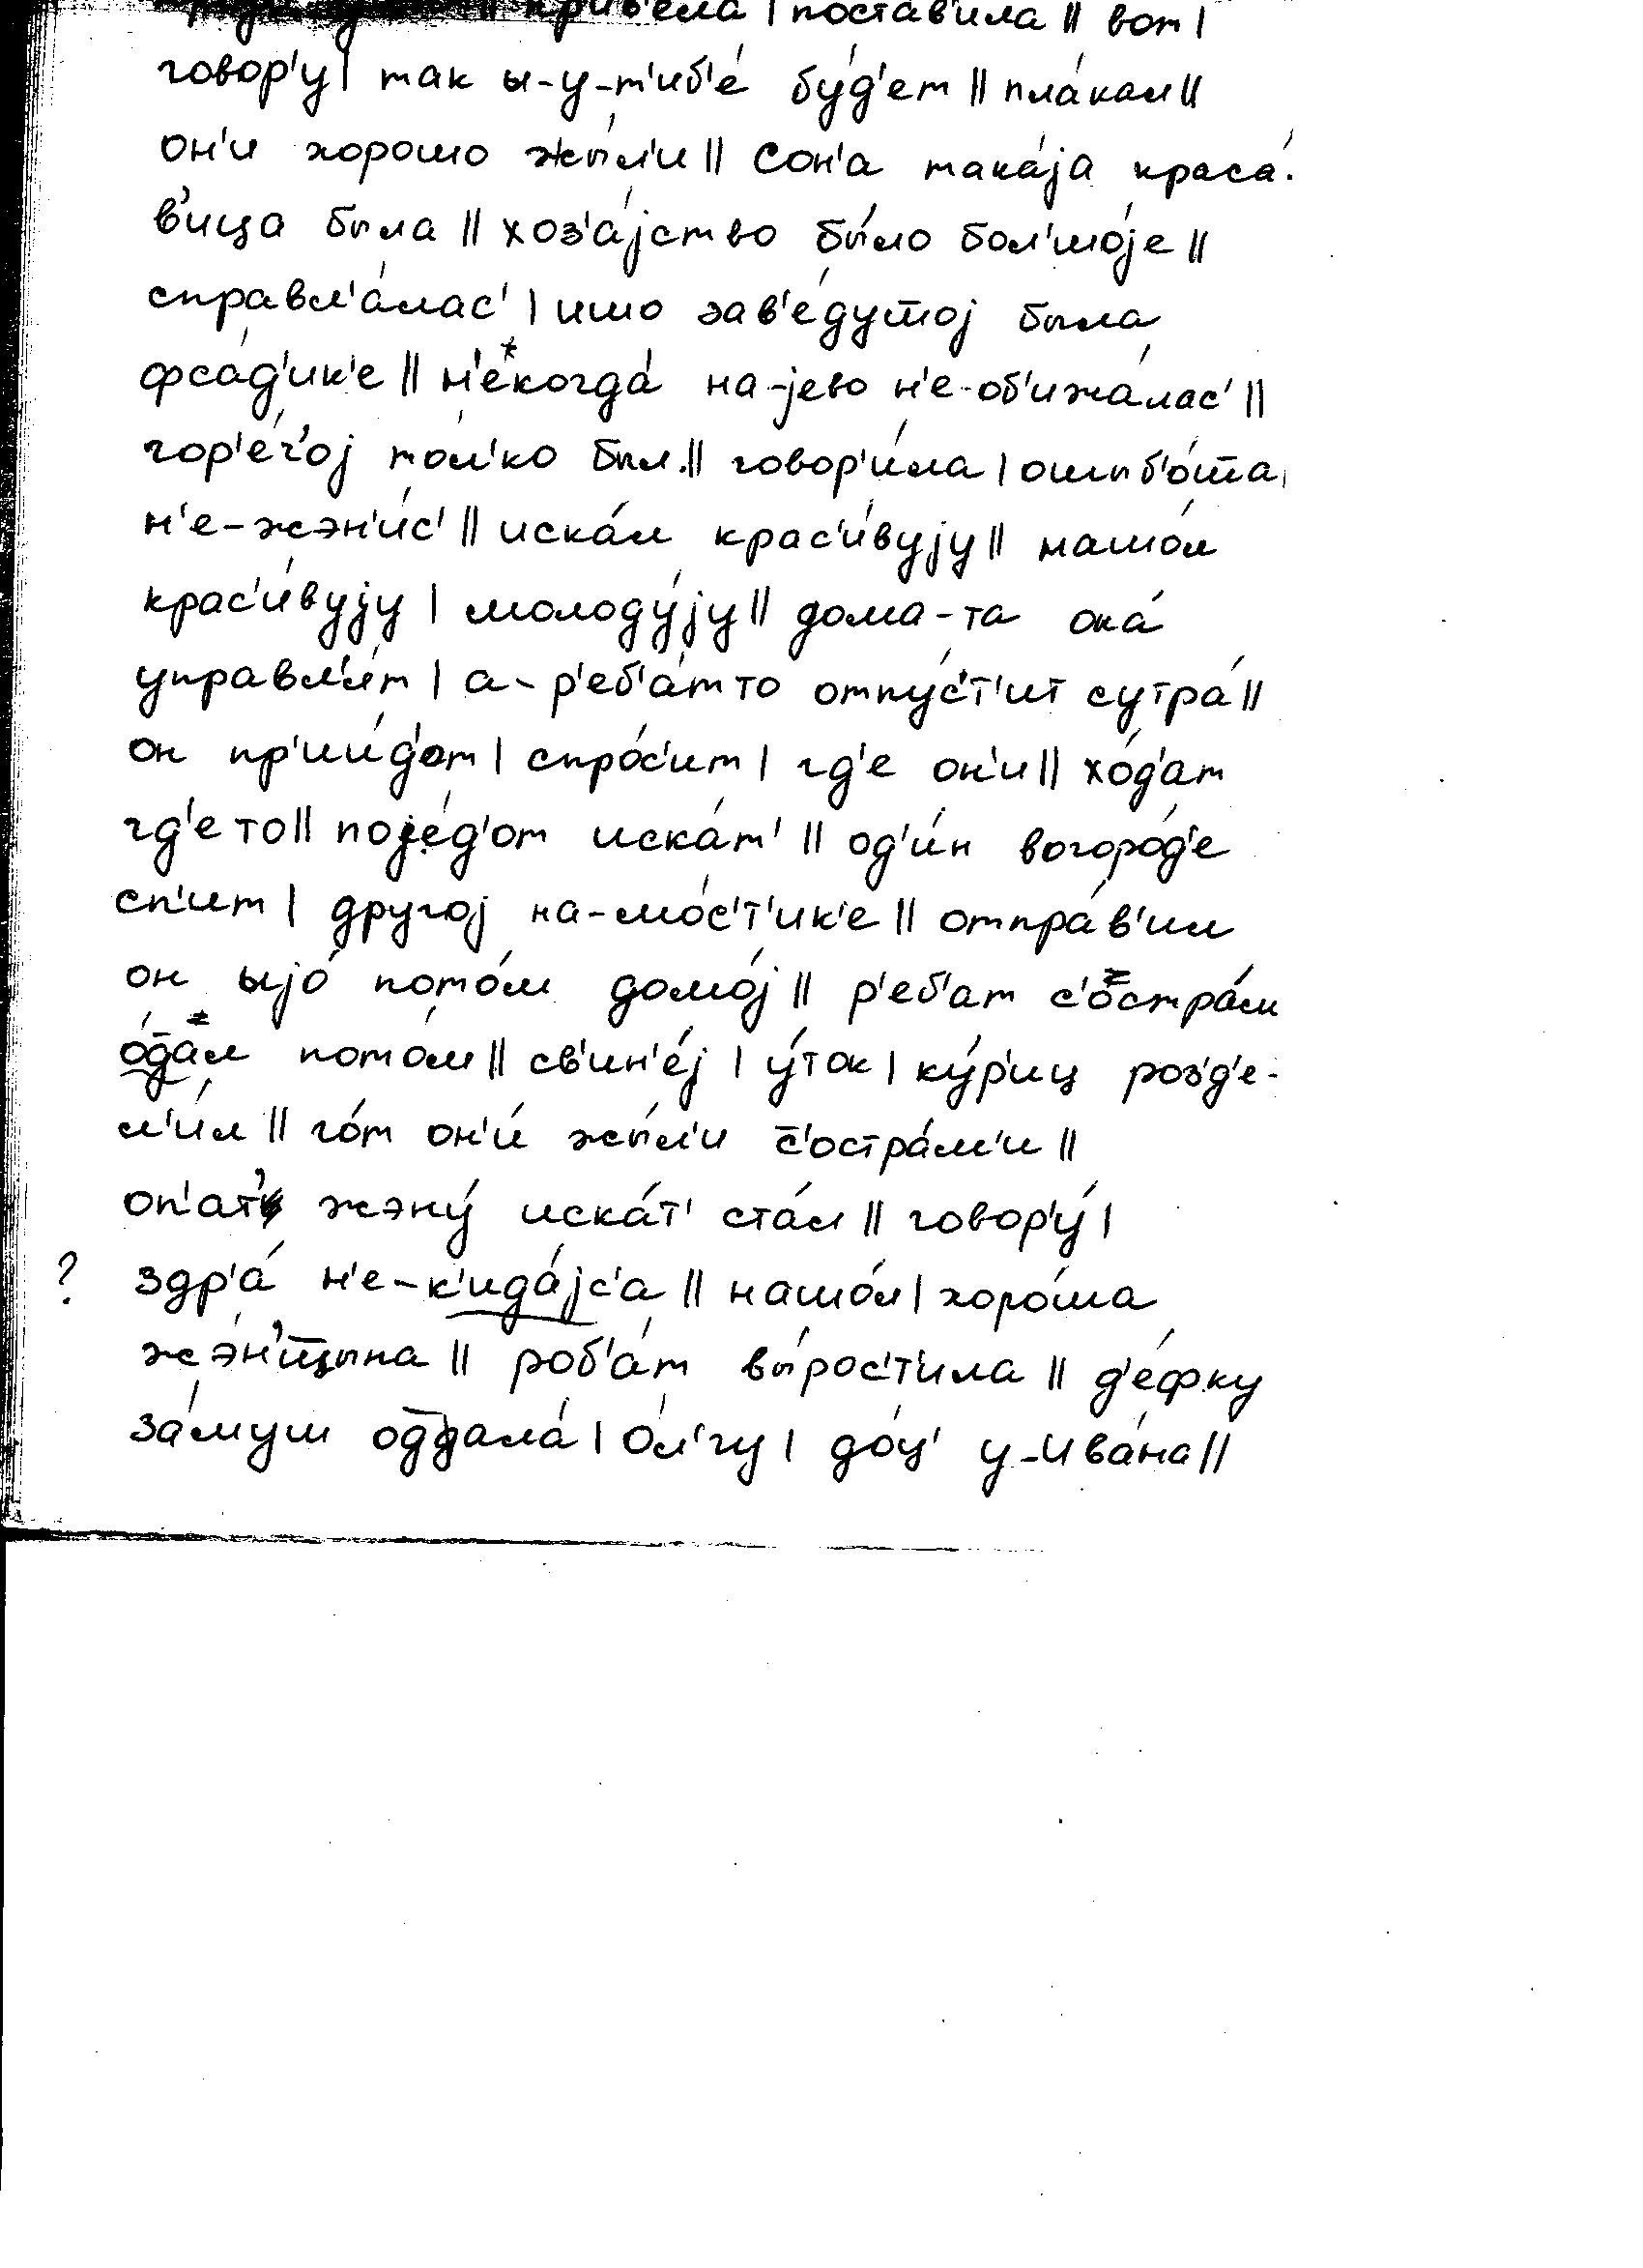 прив'ела | постав'ила || вот |
говор'у | так ы-у-т'иб'е́ бу́д'ет || пла́кал ||
он'и хорошо жы́л'и || Сон'а така́jа краса́-
в'ица была || хоз'а́jство бы́ло бол'шо́jе ||
справл'а́лас' | ишо зав'е́душ̄оj была
фса́д'ик'е || н'е́когда́ на-jево н'е-об'ижа́лас' ||
гор'е́ч'оj тол'ко был || говор'и́ла | ошыб'о́ш̄а |
н'е-жэн'и́с' || иска́л крас'и́вуjу || нашо́л
крас'и́вуjу | молоду́jу || дома-та она́
управл'я́т | а-р'еб'а́тто отпу́с'т'ит сутра́ ||
он пр'ии́д'от | спро́с'ит | гд'е он'и || хо́д'ат
гд'ето || поjе́д'от иска́т' || од'и́н вогоро́д'е
сп'ит | другоj на-мо́с'т'ик'е || отпра́в'ил
он ыjо́ пото́м домо́j || р'еб'ат с'остра́м
о́д̄ал пото́м || св'ин'е́j | у́ток | ку́р'иц роз'д'е-
л'и́л || го́т он'и́ жы́л'и с̄'остра́м'и ||
оп'ат' жэну́ иска́т' ста́л || говор'у́ |
? здр'а́ н'е-к'ида́jс'а || нашо́л | хоро́ша
жэ́н'щ̄ына || роб'а́т вы́рос'т'ила || д'е́фку
за́муш од̄дала́ | О́л'гу | до́ц' у-Ива́на ||